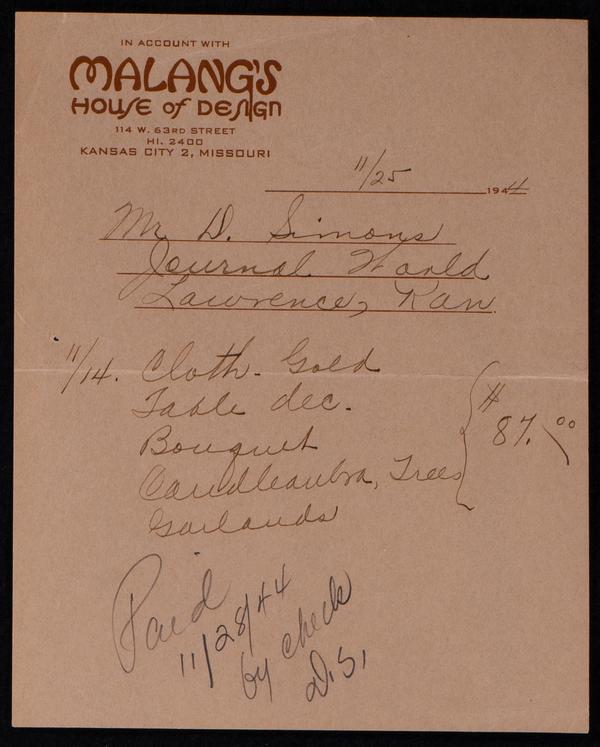 IN ACCOUNT WITH
MALANG'S
HOUSE of DESIGN
114 W. 63RD STREET
HI. 2400
KANSAS CITY 2, MISSOURI
11/25 1944
Mr D. Simons
Journal World
Lawrence, Kan.
11/14. Cloth - Gold
Table dec.
Bouquet
Candleaubra, Trees
Garlands
$ 87.00
Paid
11/28/44
by check
D.S.